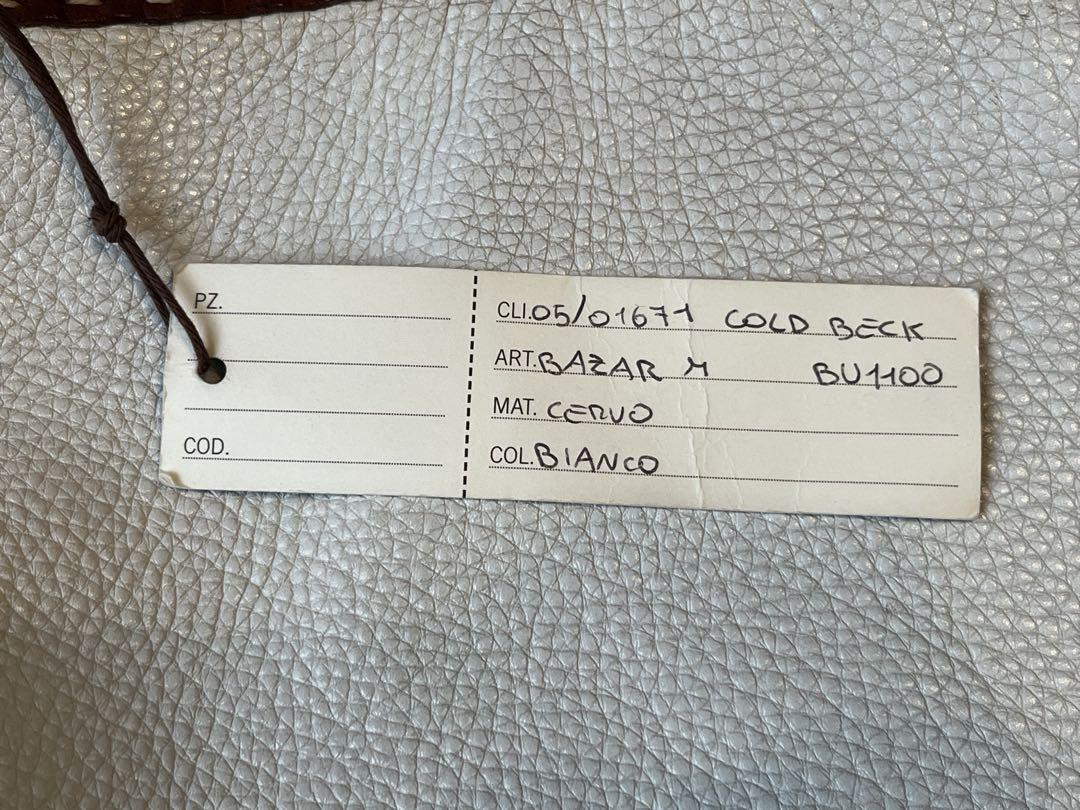 PZ.
COD.
CLI.05/01671 COLD BECK
ART.BAZAR M BU1100
MAT. CERVO
COL.BIANCO